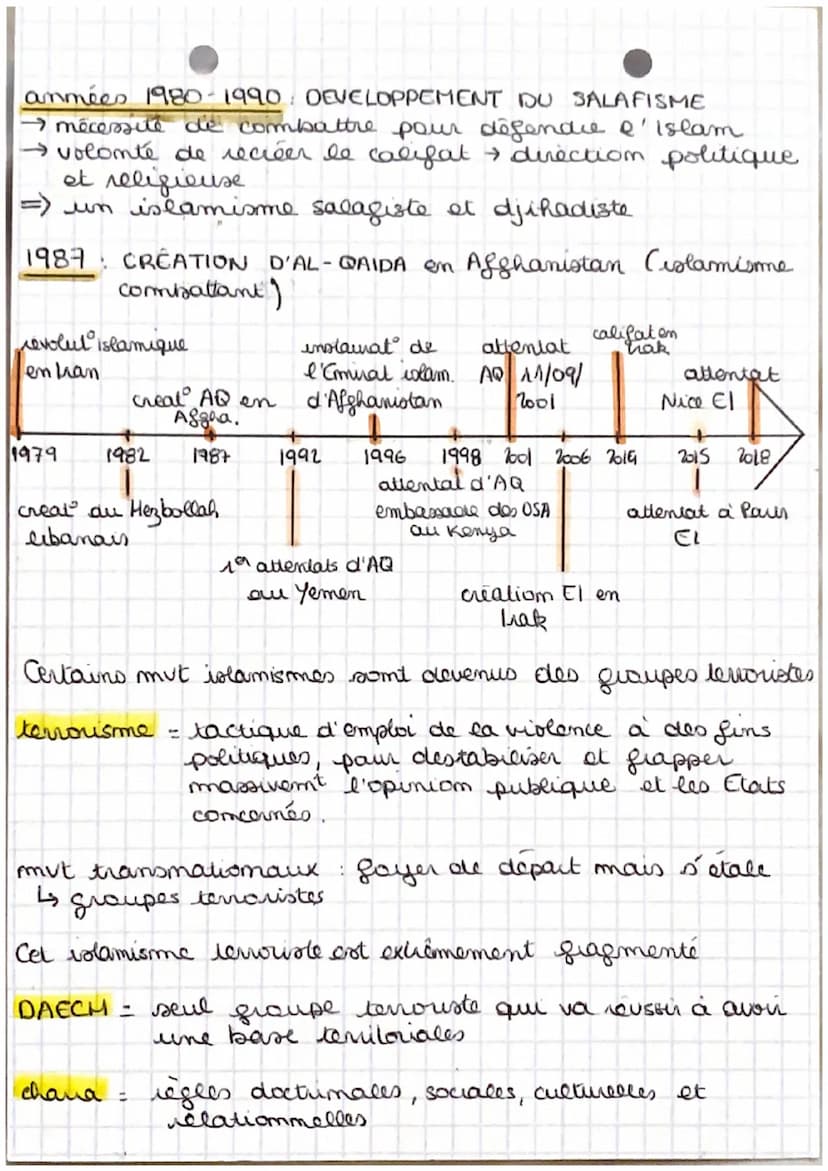 années 1980-1990 : DEVELOPPEMENT DU SALAFISME
→ nécessité de combattre pour défendre l'Islam
→ volonté de recréer le califat → direction politique
et religieuse
=> un islamisme salafiste et djihadiste
1987 : CRÉATION D'AL-QAIDA en Afghanistan (islamisme
combattant)
révolut° islamique
en Iran
creat° AQ en
Afgha.
instaurat° de
l'Emirat islam.
d'Afghanistan
attentat
AQ 11/09/
2001
califat en
Irak
attentat
Nice EI
1979 1982 1987 1992 1996 1998 2001 2006 2014 2015 2018
creat° du Hezbollah
libanais
1er attentats d'AQ
au Yemen
attentat d'AQ
embassade des USA
au Kenya
création EI en
Irak
attentat à Paris
EI
Certains mvt islamismes sont devenus des groupes terroristes
terrorisme = tactique d'emploi de la violence à des fins
politiques, pour destabiliser et frapper
massivemt l'opinion publique et les Etats
concernés.
mvt transnationaux : foyer de départ mais s'étale
↳ groupes terroristes
Cet islamisme terroriste est extrêmement fragmenté
DAECH = seul groupe terroriste qui va réussir à avoir
une base territoriales
charia = règles doctrinales, sociales, culturelles et
relationnelles